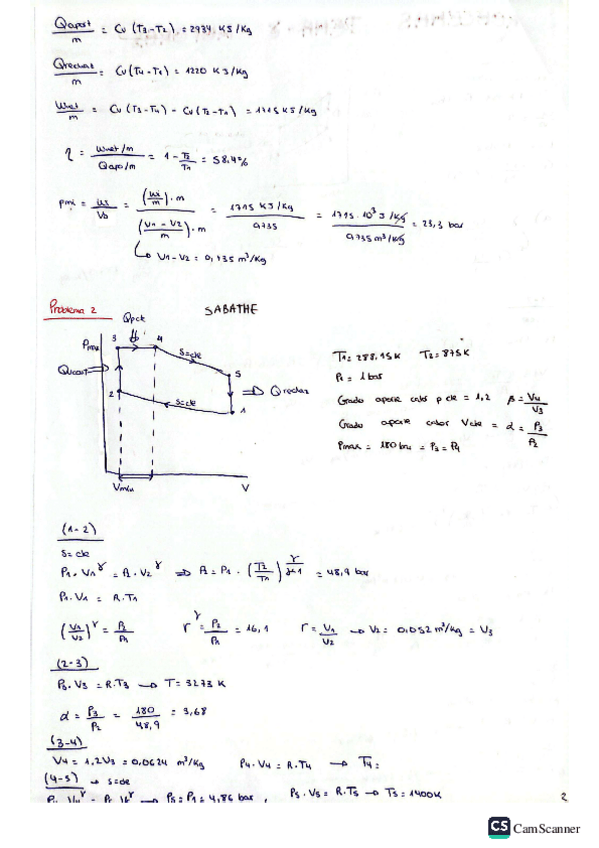 Qapost/m = Cv (T3-T2) = 2934 KJ/Kg
Qrechaz/m = Cv (T4-T1) = 1220 KJ/Kg
Wnet/m = Cv (T3-T4) - Cv (T2-T1) = 1715 KJ/Kg
η = Wnet/m / Qapo/m = 1 - T2/T1 = 58.4%
pmi = Wi/VD = (Wi/m)·m / ((V1-V2)/m)·m = 1715 KJ/Kg / 0,735 = 1715·10³ J/Kg / 0,735 m³/Kg = 23,3 bar
V1-V2 = 0,735 m³/Kg
Problema 2
SABATHE
Qpcte
Pmax 3 4
S=cte
Qvcost
5
Qrechaz
2
S=cte
1
Vmin V
T1= 288.15K T2= 875K
P1 = 1 bar
Grado aporte calor p cte = 1,2 β = V4/V3
Grado aporte calor Vcte = α = P3/P2
Pmax = 180 bar = P3 = P4
(1-2)
S=cte
P1·V1^γ = P2·V2^γ ⇒ P2 = P1·(T2/T1)^(γ/γ-1) = 48,9 bar
P1·V1 = R.T1
(V1/V2)^γ = P2/P1 r^γ = P2/P1 = 16,1 r = V1/V2 → V2 = 0,052 m³/Kg = V3
(2-3)
P3·V3 = R.T3 → T = 3273 K
α = P3/P2 = 180/48,9 = 3,68
(3-4)
V4 = 1,2V3 = 0,0624 m³/Kg P4·V4 = R.T4 → T4 =
(4-5) → S=cte
→ P5 = P1 = 4,86 bar, P5·V5 = R.T5 → T5 = 1400K
2
CS CamScanner